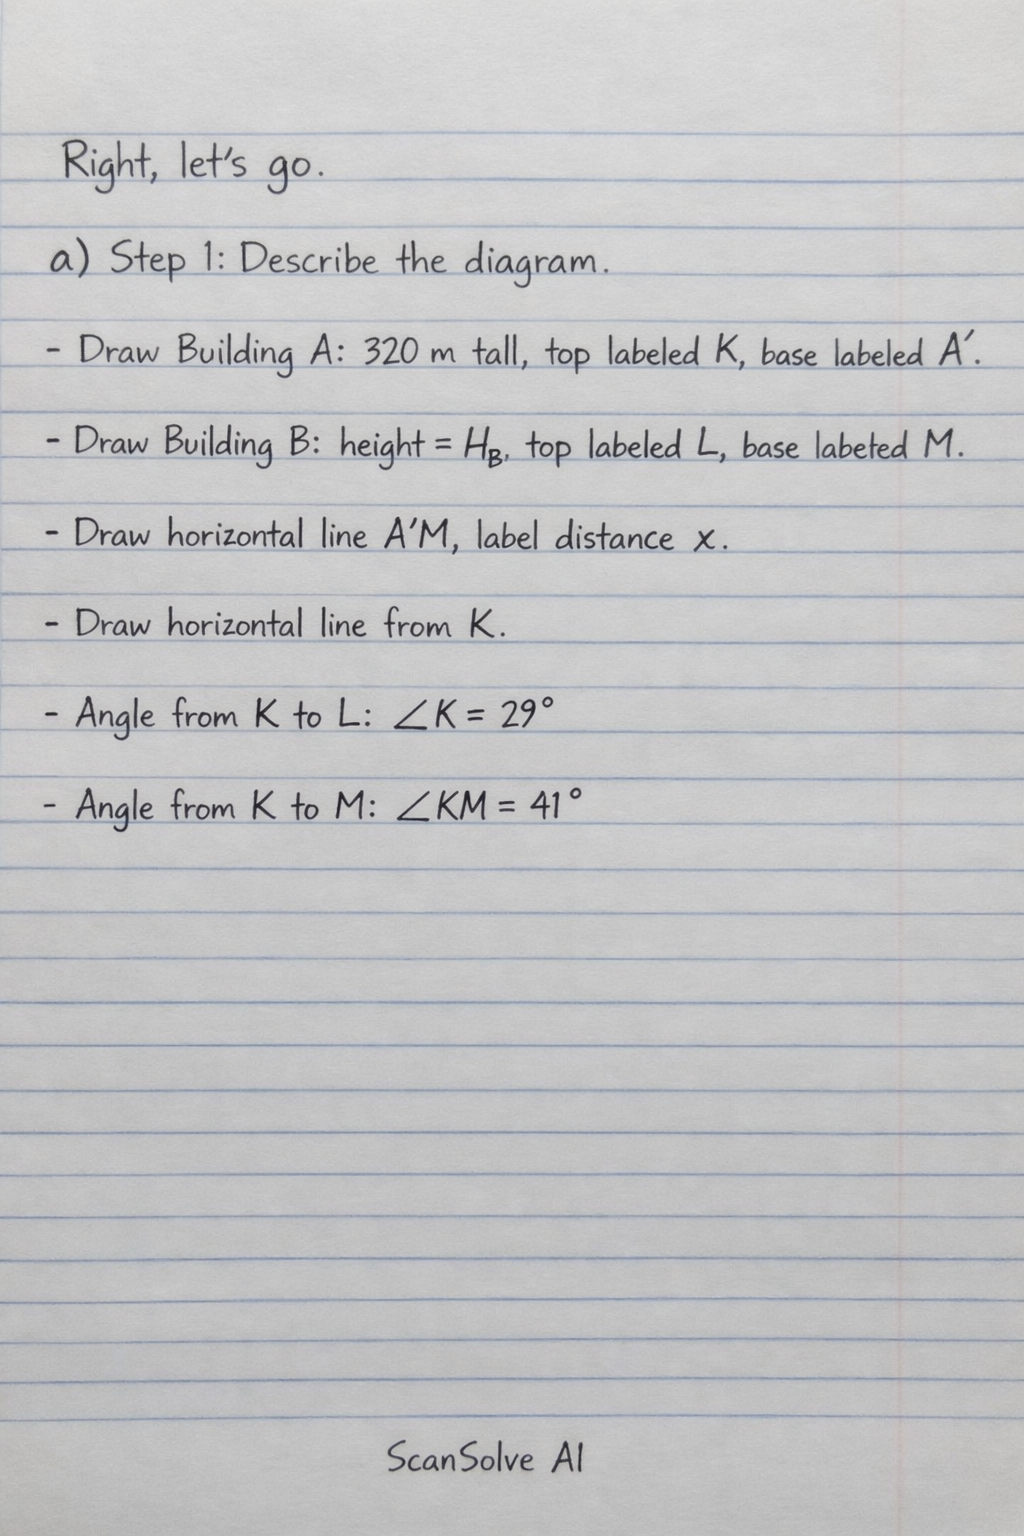 Right, let's go.
a) Step 1: Describe the diagram.
- Draw Building A: 320 m tall, top labeled K, base labeled A′.
- Draw Building B: height = H_B, top labeled L, base labeted M.
- Draw horizontal line A′M, label distance x.
- Draw horizontal line from K.
- Angle from K to L: ∠K = 29°
- Angle from K to M: ∠KM = 41°
ScanSolve AI